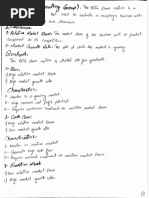 Consulting Group). The BCG Matrix is a
used to evaluate a company's business units
1- Relative Market Share: The market share of the business unit or product
compared to its competitors.
2- Market Growth Rate: The rate at which the market is growing.
Quadrants:
The BCG matrix is divided into four quadrants:
1- Stars:
High relative market share.
High market growth rate.
Characteristics:
Leaders in a growing market.
High revenue and profit potential.
Requires continued investment to sustain market share.
2- Cash Cows:
High relative market share.
Low market growth rate.
Characteristics:
Generate high cash flow
Requires minimal investment to maintain market share.
3- Question Mark
Low relative market share.
High market growth rate.